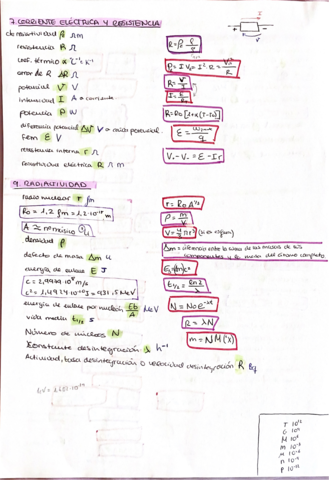 7. CORRIENTE ELÉCTRICA Y RESISTENCIA
resistividad ρ Ω m
resistencia R Ω
coef. térmico α °C⁻¹ K⁻¹
error de R ΔR Ω
potencial V V
intensidad I A
potencia P W
diferencia potencial ΔV V
fem E V
resistencia interna r Ω
resistividad eléctrica R Ω m
P = I V = I² R = V²/R
R = V/I
R = R₀ [1 + α(T - T₀)]
V - V = E - I r
9. RADIACTIVIDAD
radio nuclear r fm
R₀ = 1,2 fm = 1,2·10⁻¹⁵ m
A = nº másico
densidad ρ
defecto de masa Δm u
energía de enlace E J
c = 2,9979·10⁸ m/s
energía de enlace por nucleón Eb/A MeV
vida media t₁/₂ s
Número de núcleos N
Constante desintegración λ h⁻¹
Actividad, tasa desintegración o velocidad desintegración R Bq
r = R₀ A^1/3
ρ = m/V
V = 4/3 π r³ (si es esfera)
Δm = diferencia entre la suma de las masas de sus componentes y la masa del átomo completo
t₁/₂ = ln 2/λ
N = N₀ e^-λt
R = λN
T 10¹²
G 10⁹
M 10⁶
m 10⁻³
μ 10⁻⁶
n 10⁻⁹
p 10⁻¹²